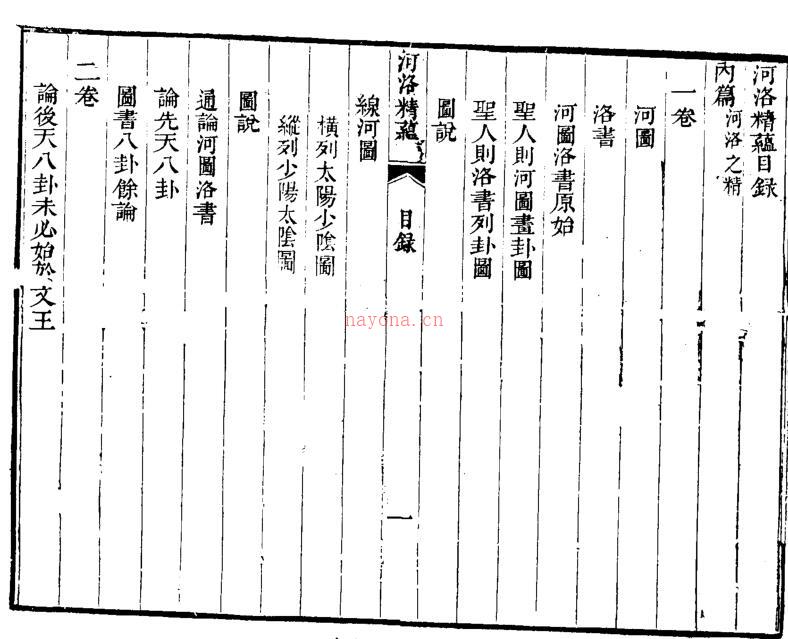 河洛精蘊目録
內篇 河洛之精
一卷
河圖
洛書
河圖洛書原始
聖人則河圖畫卦圖
聖人則洛書列卦圖
圖說
河洛精蘊 目録 一
線河圖
橫列太陽少陰圖
縱列少陽太陰圖
圖說
通論河圖洛書
論先天八卦
圖書八卦餘論
二卷
論後天八卦未必始於文王
nayona.cn